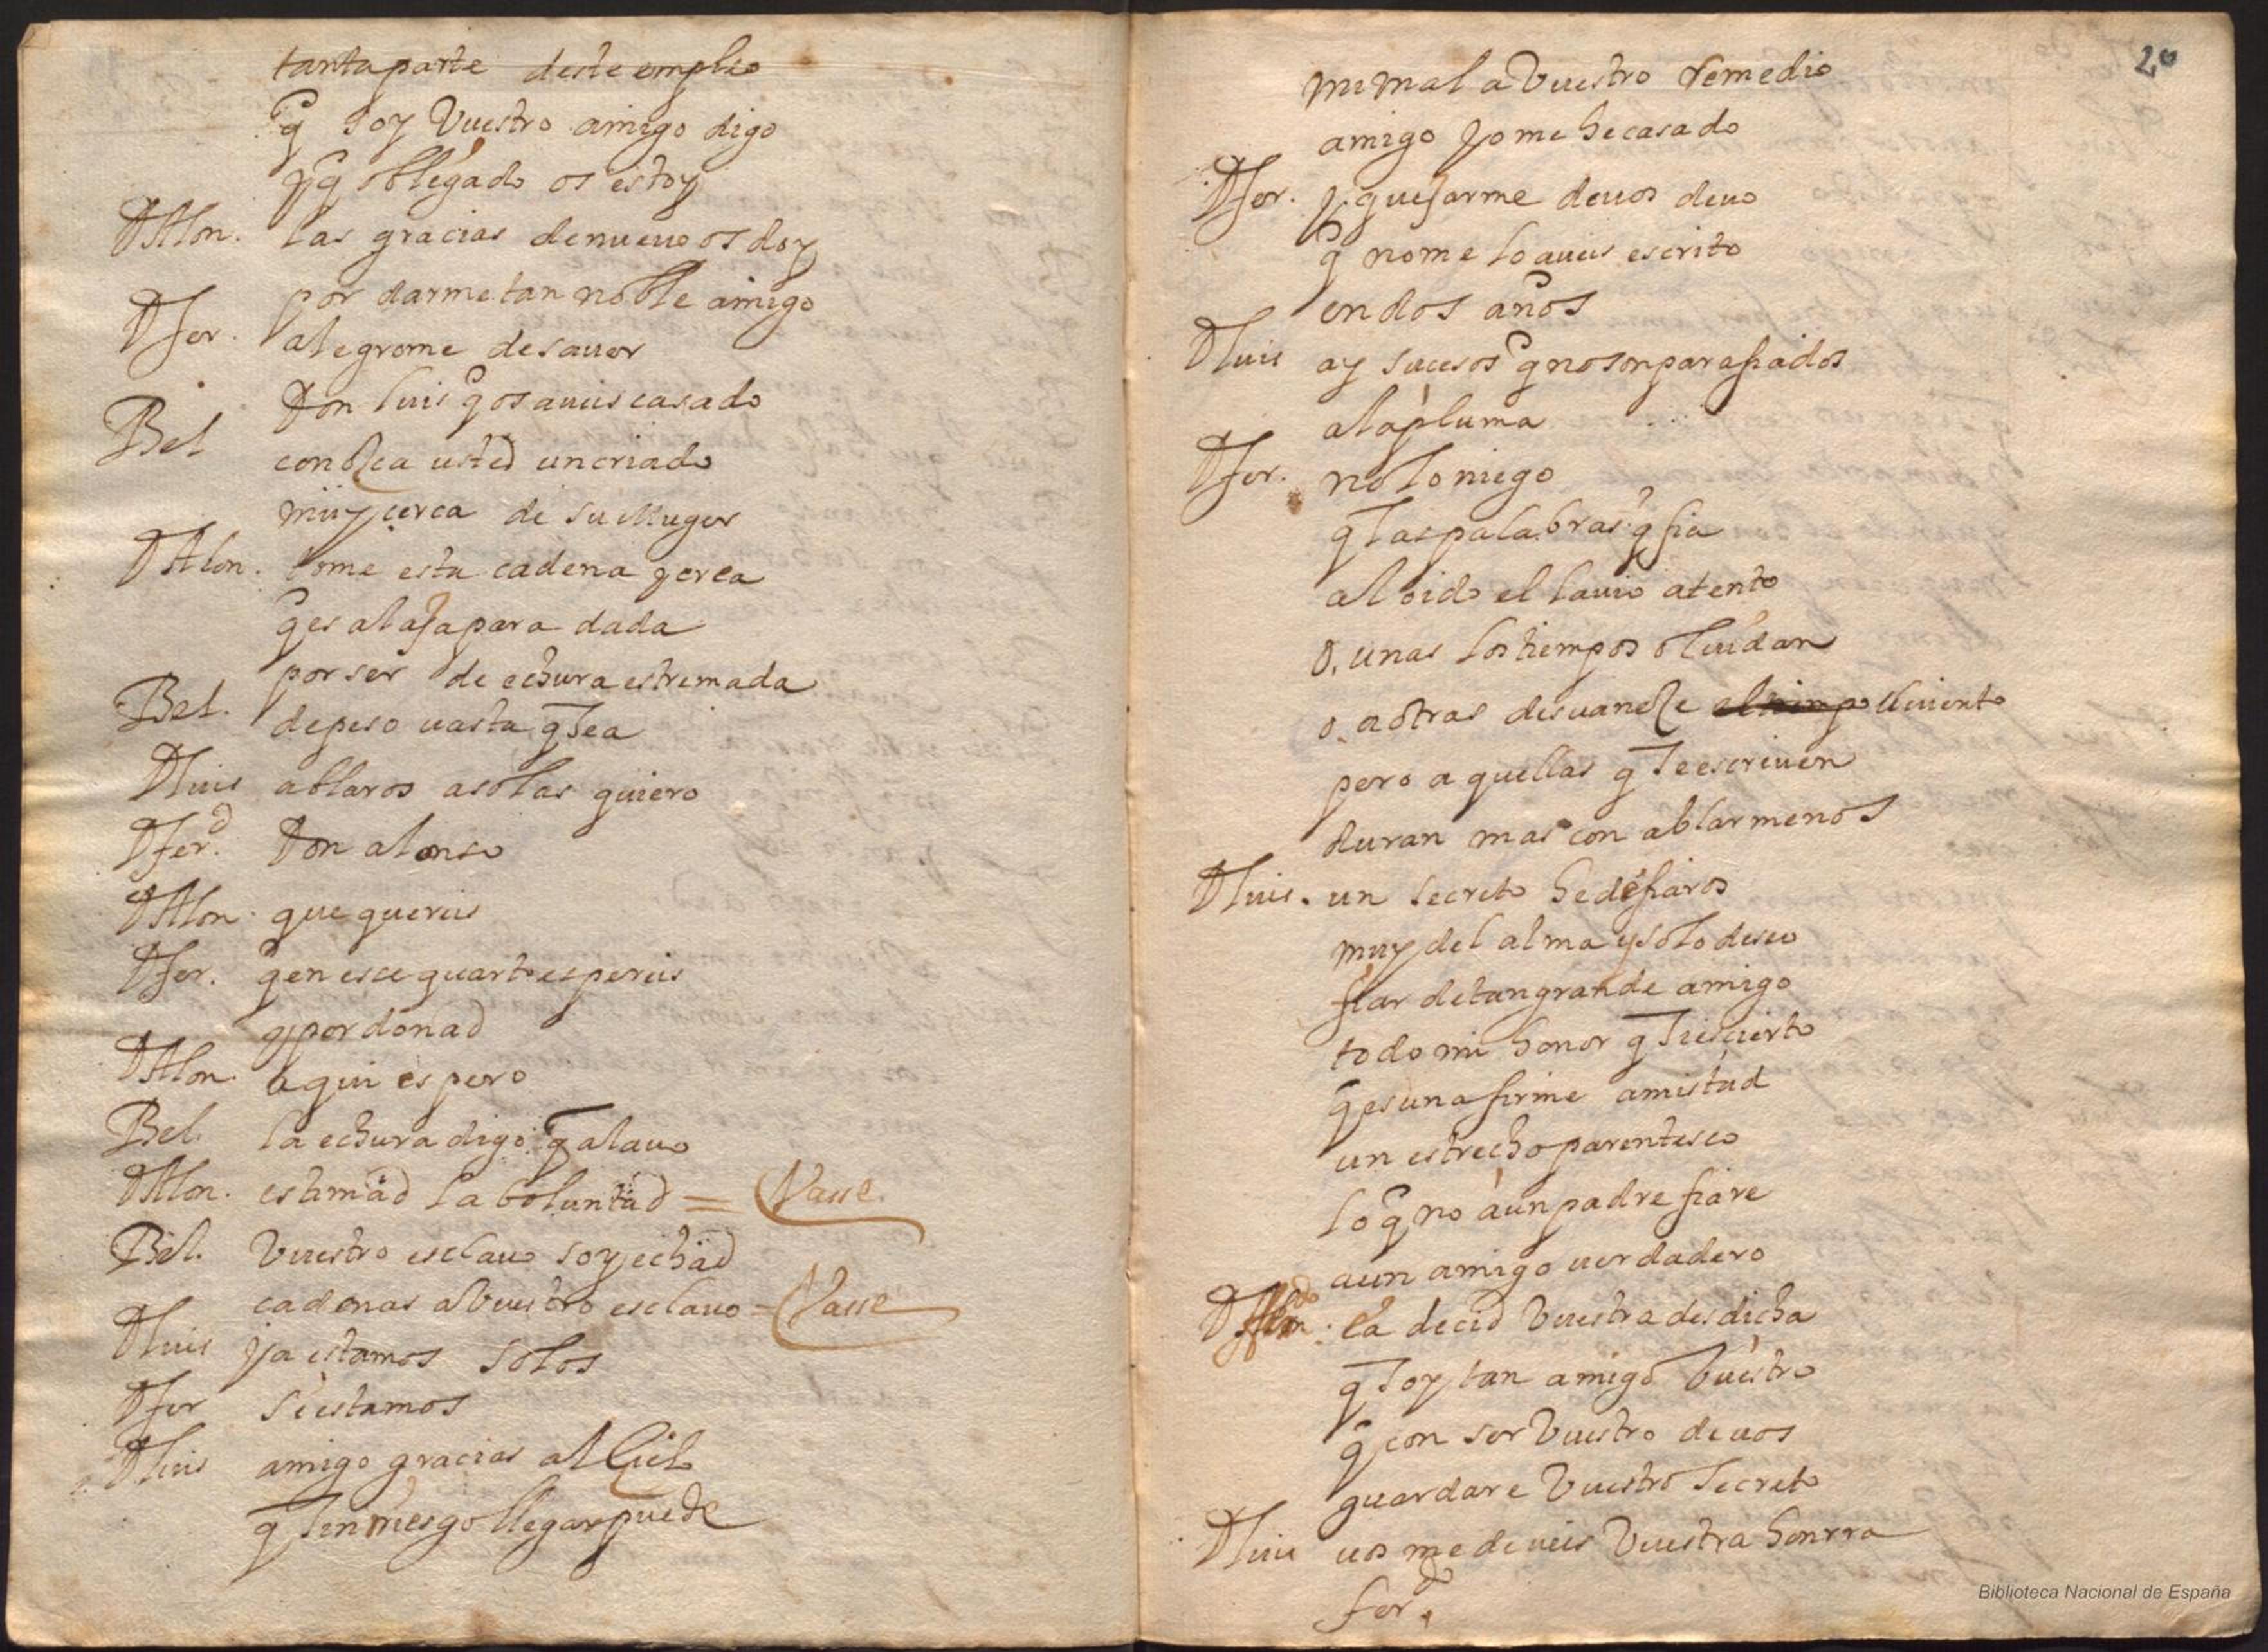 tanta parte deste empleo
q soy Vuestro amigo digo
y q obligado os estoy
D Alon. las gracias de nueuo os doy
por darme tan noble amigo
D fer. alegrome de sauer
Don luis q os aueis casado
Bel conozca usted un criado
muy cerca de su Muger
D Alon. tome esta cadena y crea
q es alaja para dada
por ser de echura estremada
Bel. de peso uasta q sea
D luis ablaros a solas quiero
D ferd. Don alonso
D Alon. que quereis
D fer. q en ese quarto espereis
y perdonad
D Alon. aqui espero
Bel. la echura digo q alauo
D Alon. estimad la boluntad = Vase
Bel. Vuestro esclauo soy echad
cadenas a Vuestro esclauo = Vase
D luis ya estamos solos
D fer si estamos
D luis amigo gracias al Cielo
q sin riesgo llegar puede
20
mi mal a Vuestro remedio
amigo yo me he casado
D fer. y quejarme de uos deuo
q no me lo aueis escrito
en dos años
D luis ay sucesos q no son para fiados
a la pluma
D fer. no lo niego
q las palabras q fia
al oido el lauio atento
o, unas los tiempos oluidan
o, a otras desuaneze el tiempo el uiento
pero aquellas q se escriuen
duran mas con ablar menos
D luis. un secreto he de fiaros
muy del alma y solo deseo
fiar de tan grande amigo
todo mi honor q si es cierto
q es una firme amistad
un estrecho parentesco
lo q no a un padre fiare
a un amigo uerdadero
D fdo. ea decid Vuestra desdicha
q soy tan amigo buestro
q con ser Vuestro de uos
guardare Vuestro secreto
D luis uos me deueis Vuestra honrra
ferd.
Biblioteca Nacional de España